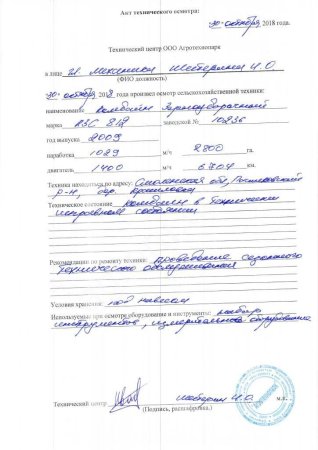 Акт технического осмотра:
30 октября 2018 года.
Технический центр ООО Агротехнопарк
в лице гл. механика Шестерина И.О.
(ФИО должность)
30 октября 2018 произвел осмотр сельскохозяйственной техники:
наименование Комбайн Зерноуборочный
марка КЗС 812 заводской № 10236
год выпуска 2009
наработка 1029 м/ч 2800 га.
двигатель 1400 м/ч км.
Техника находиться по адресу: Смоленская обл, Рославльский
р-н, дер.
Техническое состояние комбайн в технически
исправном состоянии
Рекомендации по ремонту техники: проведение сезонного
технического обслуживания
Условия хранения: под навесом
Используемы: при осмотре оборудование и инструменты: набор
инструментов, измерительное оборудование
Технический центр И.О. м.п.
(Подпись, расшифровка.)